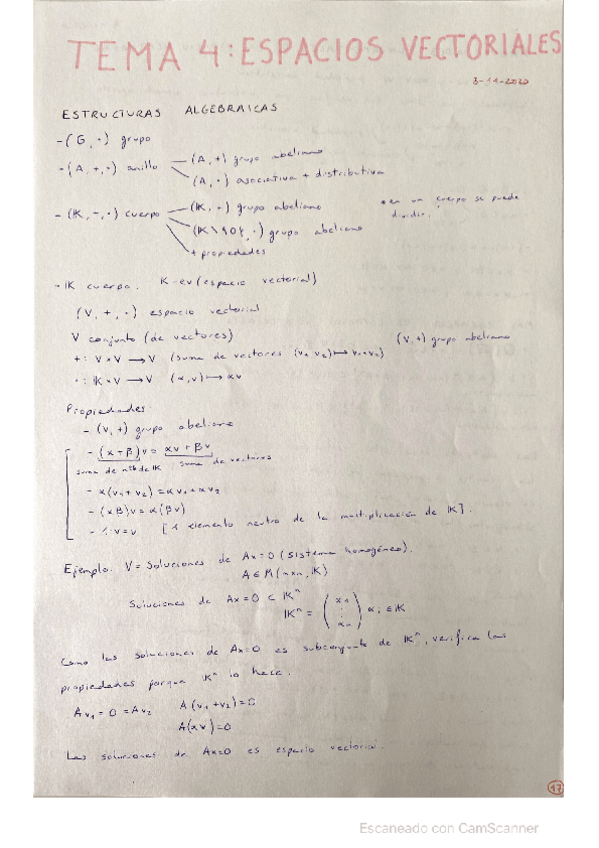 TEMA 4: ESPACIOS VECTORIALES
3-11-2020
ESTRUCTURAS ALGEBRAICAS
-(G,·) grupo
-(A,+,·) anillo
(A,+) grupo abeliano
(A,·) asociativa + distributiva
-(K,+,·) cuerpo
(K,+) grupo abeliano
(K\{0},·) grupo abeliano
+ propiedades
*en un cuerpo se puede
dividir.
-K cuerpo. K-ev (espacio vectorial)
(V,+,·) espacio vectorial
V conjunto (de vectores)
(V,+) grupo abeliano
+: V×V → V (suma de vectores (v₁,v₂) ↦ v₁+v₂)
·: K×V → V (α,v) ↦ αv
Propiedades:
-(V,+) grupo abeliano
-(α+β)v = αv+βv
suma de nºs de K suma de vectores
-α(v₁+v₂)=αv₁+αv₂
-(αβ)v=α(βv)
-1·v=v [1 elemento neutro de la multiplicación de K].
Ejemplo: V=Soluciones de Ax=0 (sistema homogéneo).
A∈M(n×n,K)
Soluciones de Ax=0 ⊂ Kⁿ
Kⁿ = (α₁ ⋮ αₙ) αᵢ∈K
Como las soluciones de Ax=0 es subconjunto de Kⁿ, verifica las
propiedades porque Kⁿ lo hace.
Av₁=0=Av₂ A(v₁+v₂)=0
A(αv)=0
Las soluciones de Ax=0 es espacio vectorial.
17
Escaneado con CamScanner